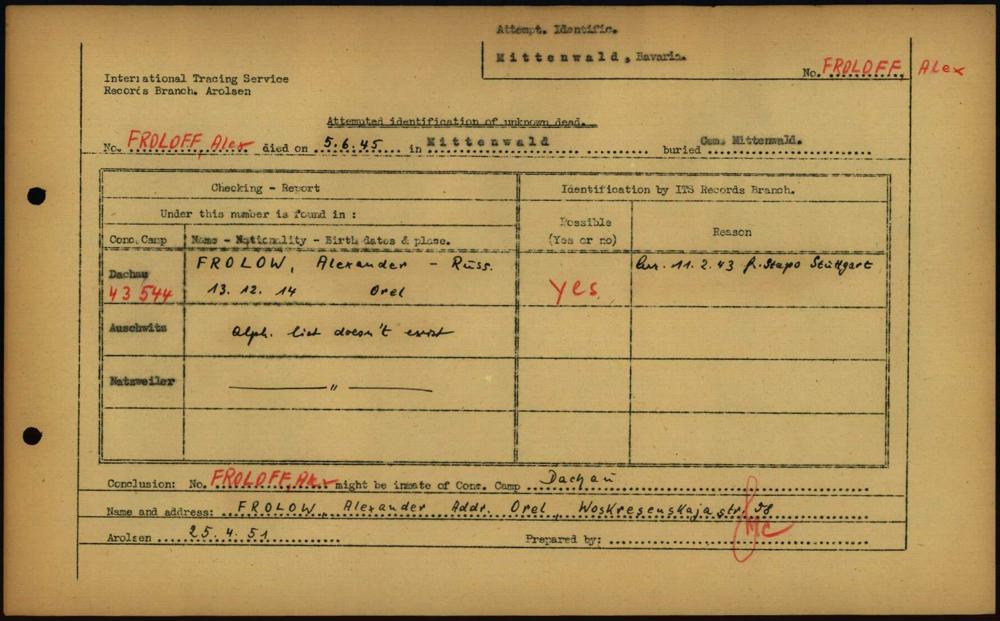 Attempt. Identific.
Mittenwald, Bavaria.
No. FROLOFF, Alex
International Tracing Service
Records Branch. Arolsen
Attempted identification of unknown dead.
No. FROLOFF, Alex died on 5.6.45 in Mittenwald buried Cem. Mittenwald.
Checking - Report
Identification by ITS Records Branch.
Under this number is found in :
Possible
(Yes or no)
Reason
Conc. Camp
Name - Nationality - Birthdates & place.
Dachau
43 544
FROLOW, Alexander - Russ.
13. 12. 14 Orel
yes
11.2.43 Stapo Stuttgart
Auschwitz
alph. list doesn't exist
Natzweiler
— " —
Conclusion: No. FROLOFF, Alex might be inmate of Conc. Camp Dachau
Name and address: FROLOW, Alexander Addr. Orel, Woskresenskaja str.
Arolsen 25.4.51
Prepared by: